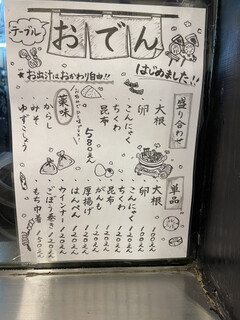 テーブル
おでん
はじめました!!
★お出汁はおかわり自由!!
盛り合わせ
・大根
・卵
・こんにゃく
・ちくわ
・昆布
580えん
薬味
・からし
・みそ
・ゆずこしょう
単品
・大根 100えん
・卵 100えん
・こんにゃく
・ちくわ
・昆布
・がんも
・厚揚げ 120えん
・はんぺん 120えん
・ウインナー 120えん
・ごぼう巻き 120えん
・もち巾着 150えん